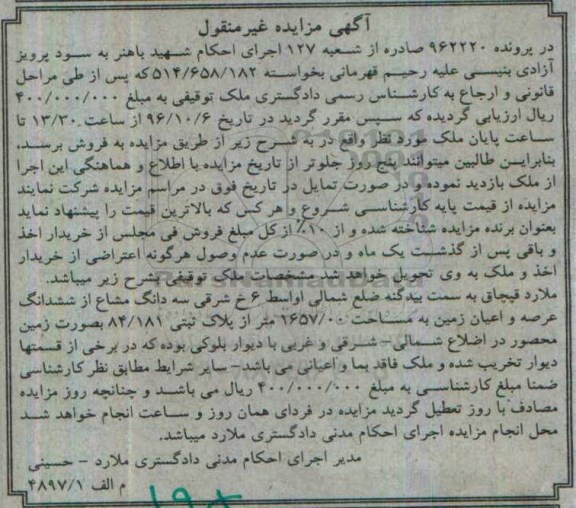 آگهی مزایده غیرمنقول
در پرونده ۹۶۲۲۲۰ صادره از شعبه ۱۲۷ اجرای احکام شهید باهنر به سود پرویز
آزادی بنیسی علیه رحیم قهرمانی بخواسته ۵۱۴/۶۵۸/۱۸۲ که پس از طی مراحل
قانونی و ارجاع به کارشناس رسمی دادگستری ملک توقیفی به مبلغ ۴۰۰/۰۰۰/۰۰۰
ریال ارزیابی گردیده که سپس مقرر گردید در تاریخ ۹۶/۱۰/۶ از ساعت ۱۳/۳۰ تا
ساعت پایان ملک مورد نظر واقع در به شرح زیر از طریق مزایده به فروش برسد.
بنابراین طالبین میتوانند پنج روز جلوتر از تاریخ مزایده با اطلاع و هماهنگی این اجرا
از ملک بازدید نموده و در صورت تمایل در تاریخ فوق در مراسم مزایده شرکت نمایند
مزایده از قیمت پایه کارشناسی شروع و هر کس که بالاترین قیمت را پیشنهاد نماید
بعنوان برنده مزایده شناخته شده و از ۱۰٪ از کل مبلغ فروش فی مجلس از خریدار اخذ
و باقی پس از گذشت یک ماه و در صورت عدم وصول هرگونه اعتراضی از خریدار
اخذ و ملک به وی تحویل خواهد شد مشخصات ملک توقیفی بشرح زیر میباشد.
ملارد قبچاق به سمت بیدگنه ضلع شمالی اواسط ۶خ شرقی سه دانگ مشاع از ششدانگ
عرصه و اعیان زمین به مساحت ۱۶۵۷/۰۰ متر از پلاک ثبتی ۸۴/۱۸۱ بصورت زمین
محصور در اضلاع شمالی- شرقی و غربی با دیوار بلوکی بوده که در برخی از قسمتها
دیوار تخریب شده و ملک فاقد بما و اعیانی می باشد- سایر شرایط مطابق نظر کارشناسی
ضمنا مبلغ کارشناسی به مبلغ ۴۰۰/۰۰۰/۰۰۰ ریال می باشد و چنانچه روز مزایده
مصادف با روز تعطیل گردید مزایده در فردای همان روز و ساعت انجام خواهد شد
محل انجام مزایده اجرای احکام مدنی دادگستری ملارد میباشد.
مدیر اجرای احکام مدنی دادگستری ملارد - حسینی
م الف ۴۸۹۷/۱